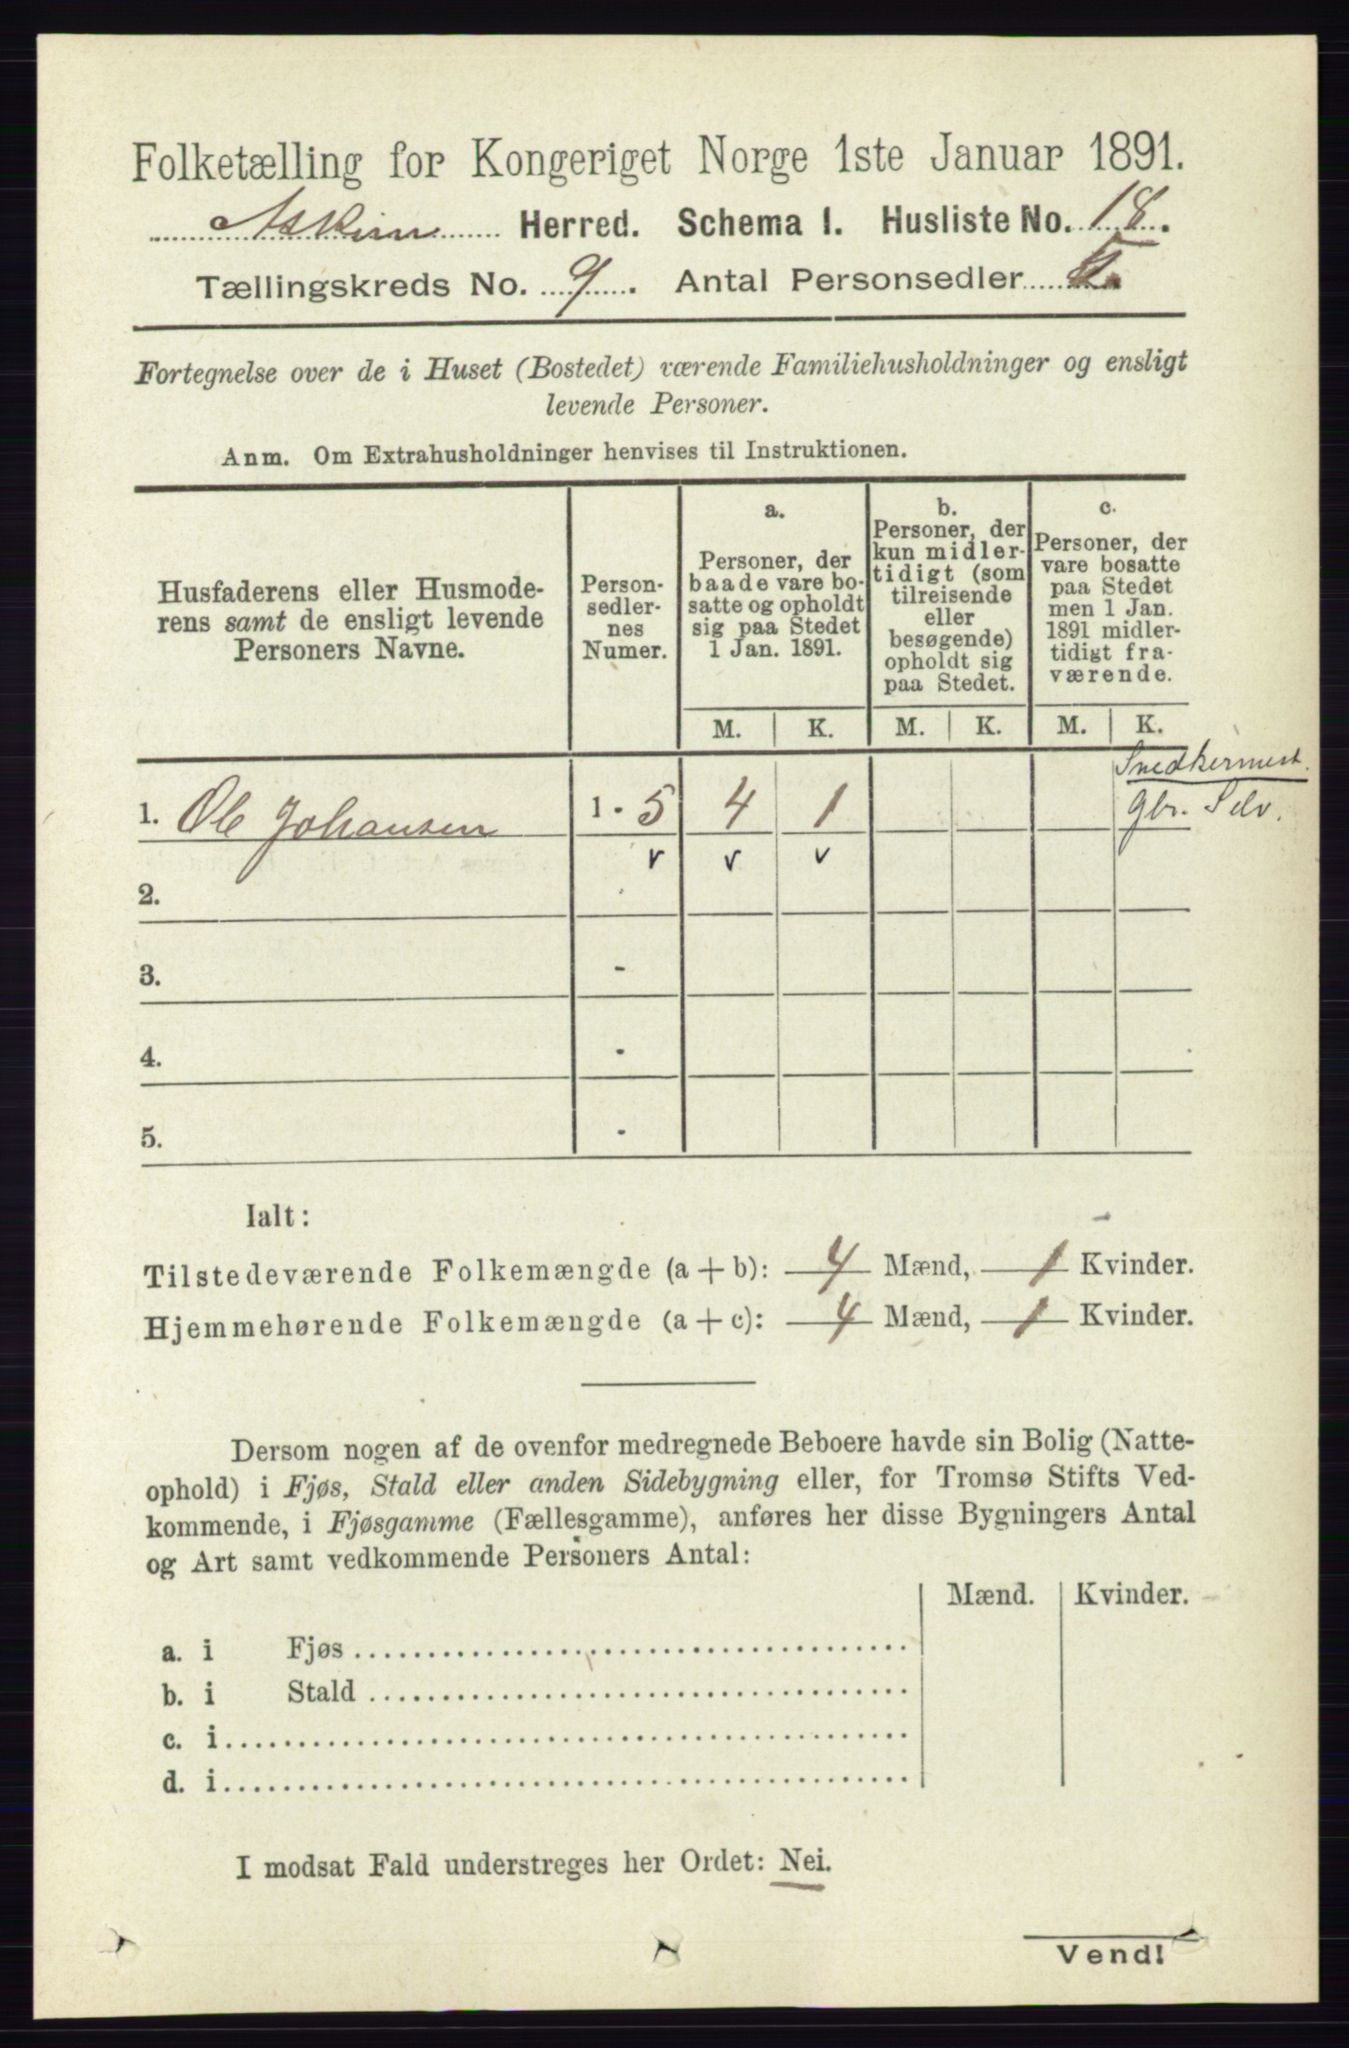 Folketælling for Kongeriget Norge 1ste Januar 1891.
Askim Herred. Schema I. Husliste No. 18.
Tællingskreds No. 9. Antal Personsedler 5.
Fortegnelse over de i Huset (Bostedet) værende Familiehusholdninger og ensligt
levende Personer.
Anm. Om Extrahusholdninger henvises til Instruktionen.
Husfaderens eller Husmode-
rens samt de ensligt levende
Personers Navne.
Person-
sedler-
nes
Numer.
a.
Personer, der
baade vare bo-
satte og opholdt
sig paa Stedet
1 Jan. 1891.
b.
Personer, der
kun midler-
tidigt (som
tilreisende
eller
besøgende)
opholdt sig
paa Stedet.
c.
Personer, der
vare bosatte
paa Stedet
men 1 Jan.
1891 midler-
tidigt fra-
værende.
M. K. M. K. M. K.
Snedkermest.
1. Ole Johansen 1 - 5 4 1 gbr. Selv.
v v v
2. -
3. -
4. -
5. -
Ialt:
Tilstedeværende Folkemængde (a + b): 4 Mænd, 1 Kvinder.
Hjemmehørende Folkemængde (a + c): 4 Mænd, 1 Kvinder.
Dersom nogen af de ovenfor medregnede Beboere havde sin Bolig (Natte-
ophold) i Fjøs, Stald eller anden Sidebygning eller, for Tromsø Stifts Ved-
kommende, i Fjøsgamme (Fællesgamme), anføres her disse Bygningers Antal
og Art samt vedkommende Personers Antal:
Mænd. Kvinder.
a. i Fjøs
b. i Stald
c. i
d. i
I modsat Fald understreges her Ordet: Nei.
Vend!